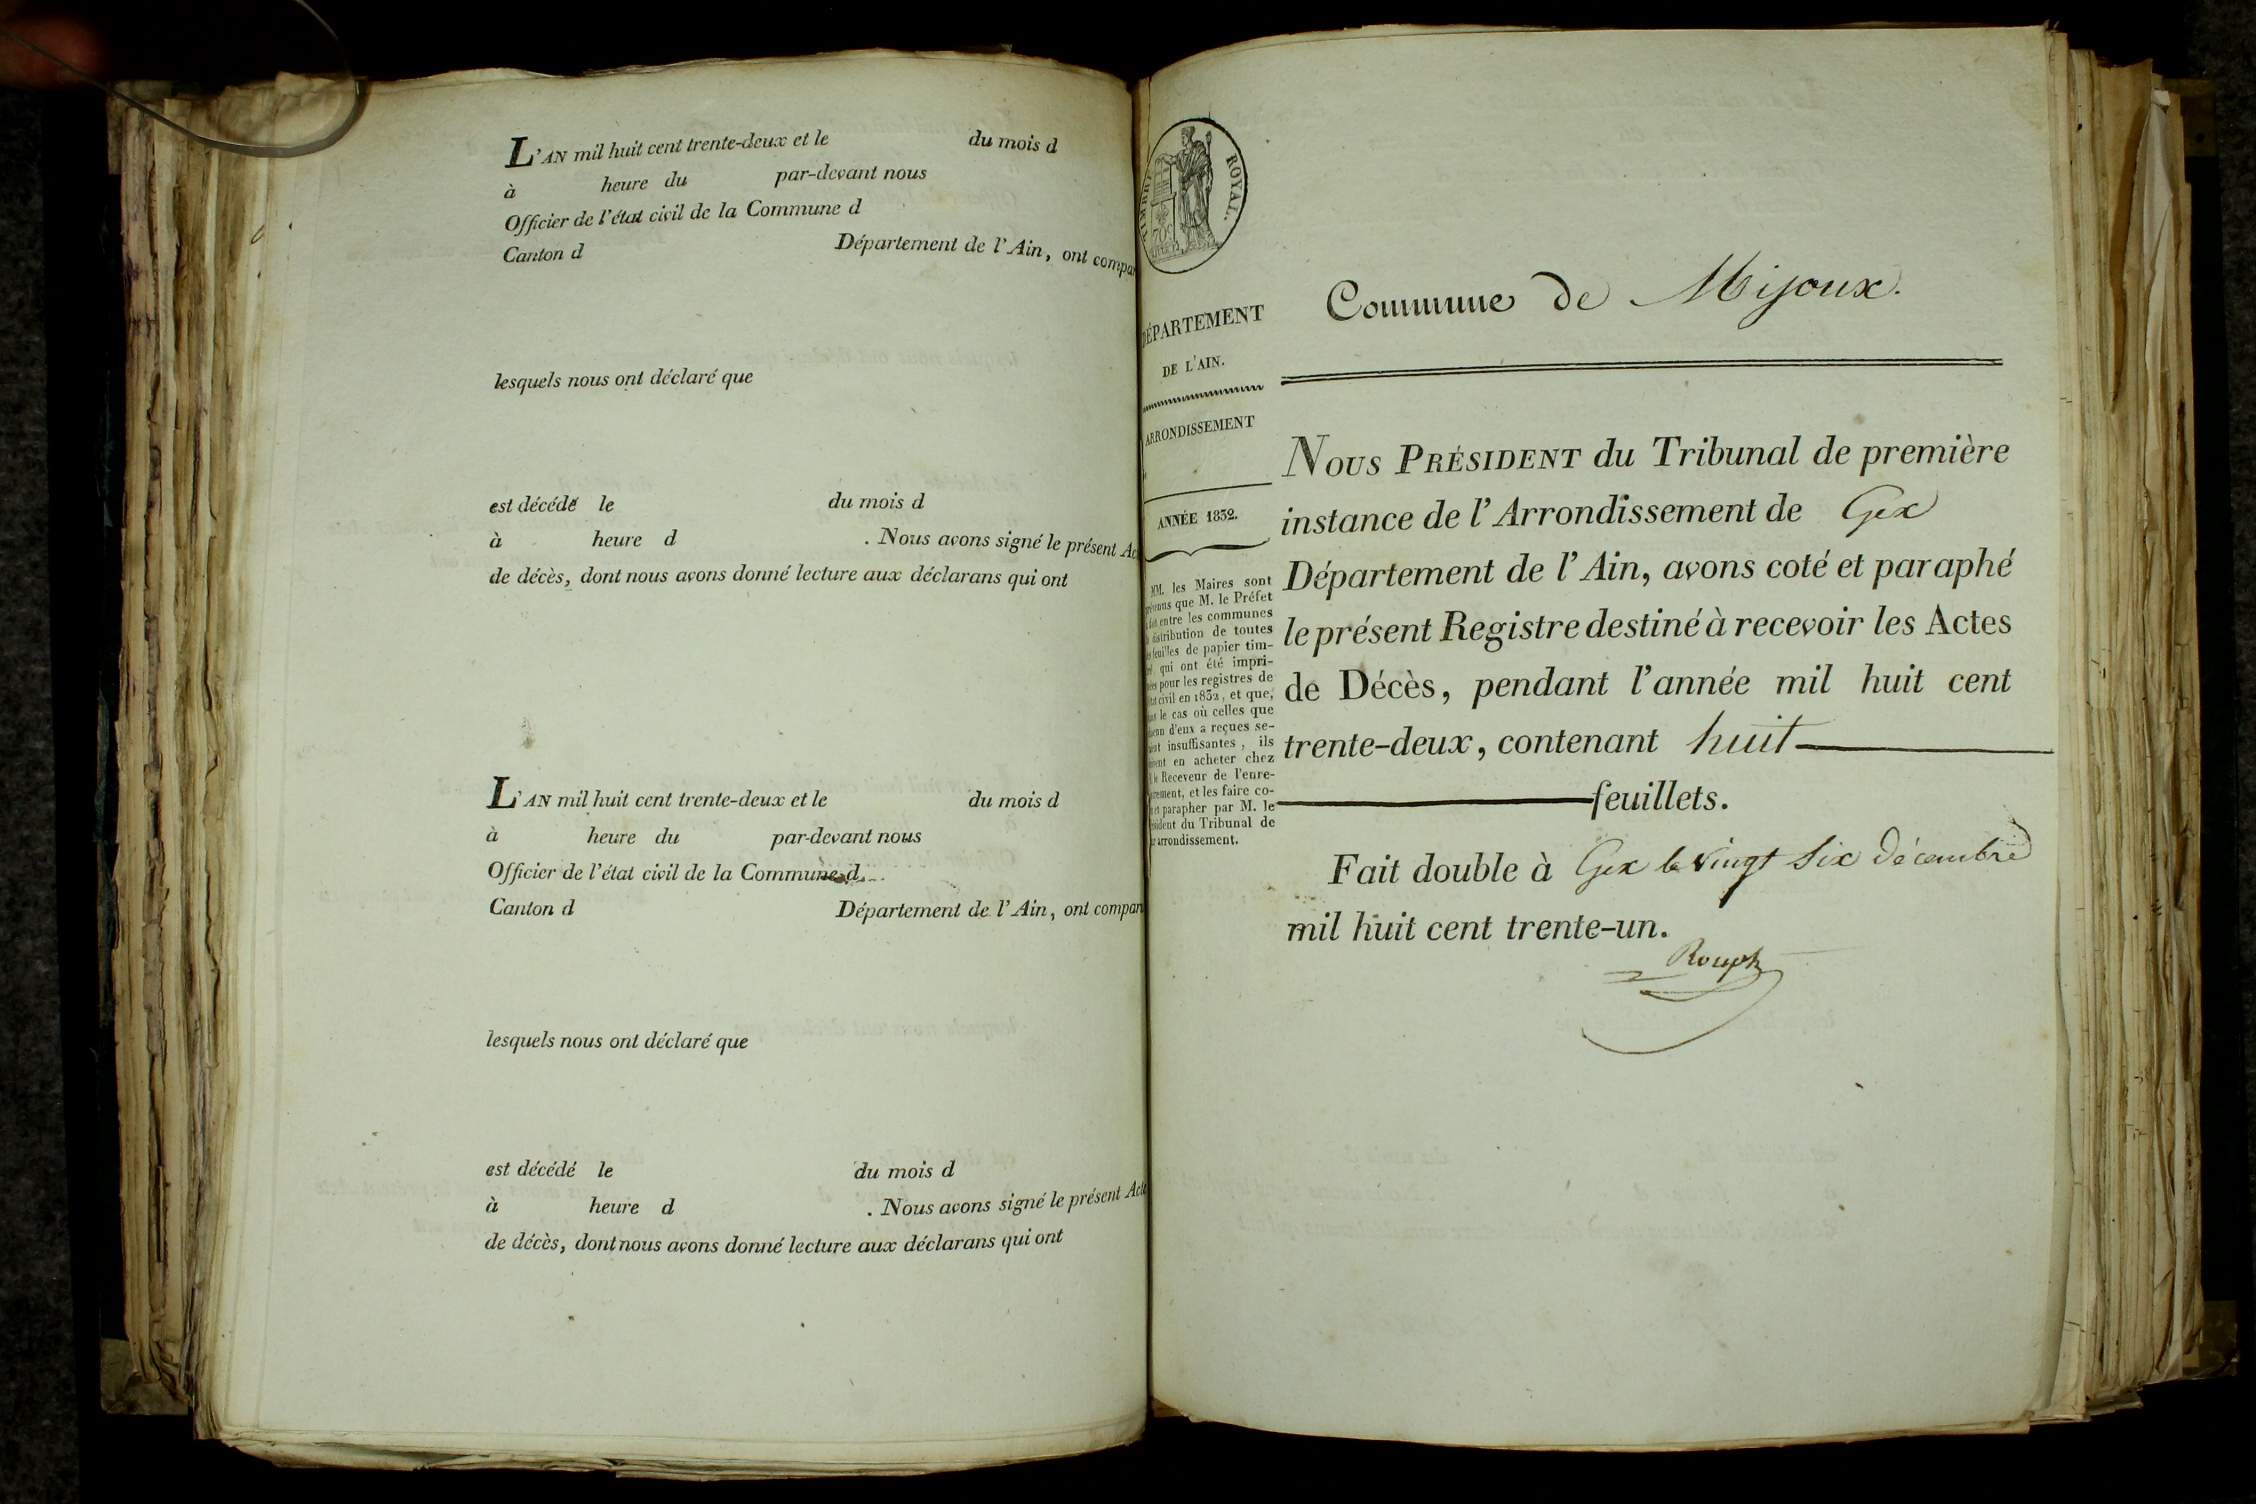 L'AN mil huit cent trente-deux et le du mois d
à heure du par-devant nous
Officier de l'état civil de la Commune d
Canton d Département de l'Ain, ont compar
lesquels nous ont déclaré que
est décédé le du mois d
à heure d . Nous avons signé le présent Ac
de décès, dont nous avons donné lecture aux déclarans qui ont
L'AN mil huit cent trente-deux et le du mois d
à heure du par-devant nous
Officier de l'état civil de la Commune d
Canton d Département de l'Ain, ont compar
lesquels nous ont déclaré que
est décédé le du mois d
à heure d . Nous avons signé le présent Acte
de décès, dont nous avons donné lecture aux déclarans qui ont
TIMBRE ROYAL.
70c
DÉPARTEMENT
DE L'AIN.
ARRONDISSEMENT
ANNÉE 1832.
MM. les Maires sont
que M. le Préfet
entre les communes
distribution de toutes
feuilles de papier tim-
qui ont été impri-
pour les registres de
civil en 1832, et que,
le cas où celles que
d'eux a reçues se-
insuffisantes, ils
en acheter chez
le Receveur de l'enre-
et les faire co-
et parapher par M. le
du Tribunal de
arrondissement.
Commune de Mijoux.
NOUS PRÉSIDENT du Tribunal de première
instance de l'Arrondissement de Gex
Département de l'Ain, avons coté et paraphé
le présent Registre destiné à recevoir les Actes
de Décès, pendant l'année mil huit cent
trente-deux, contenant huit
feuillets.
Fait double à Gex le vingt six décembre
mil huit cent trente-un.